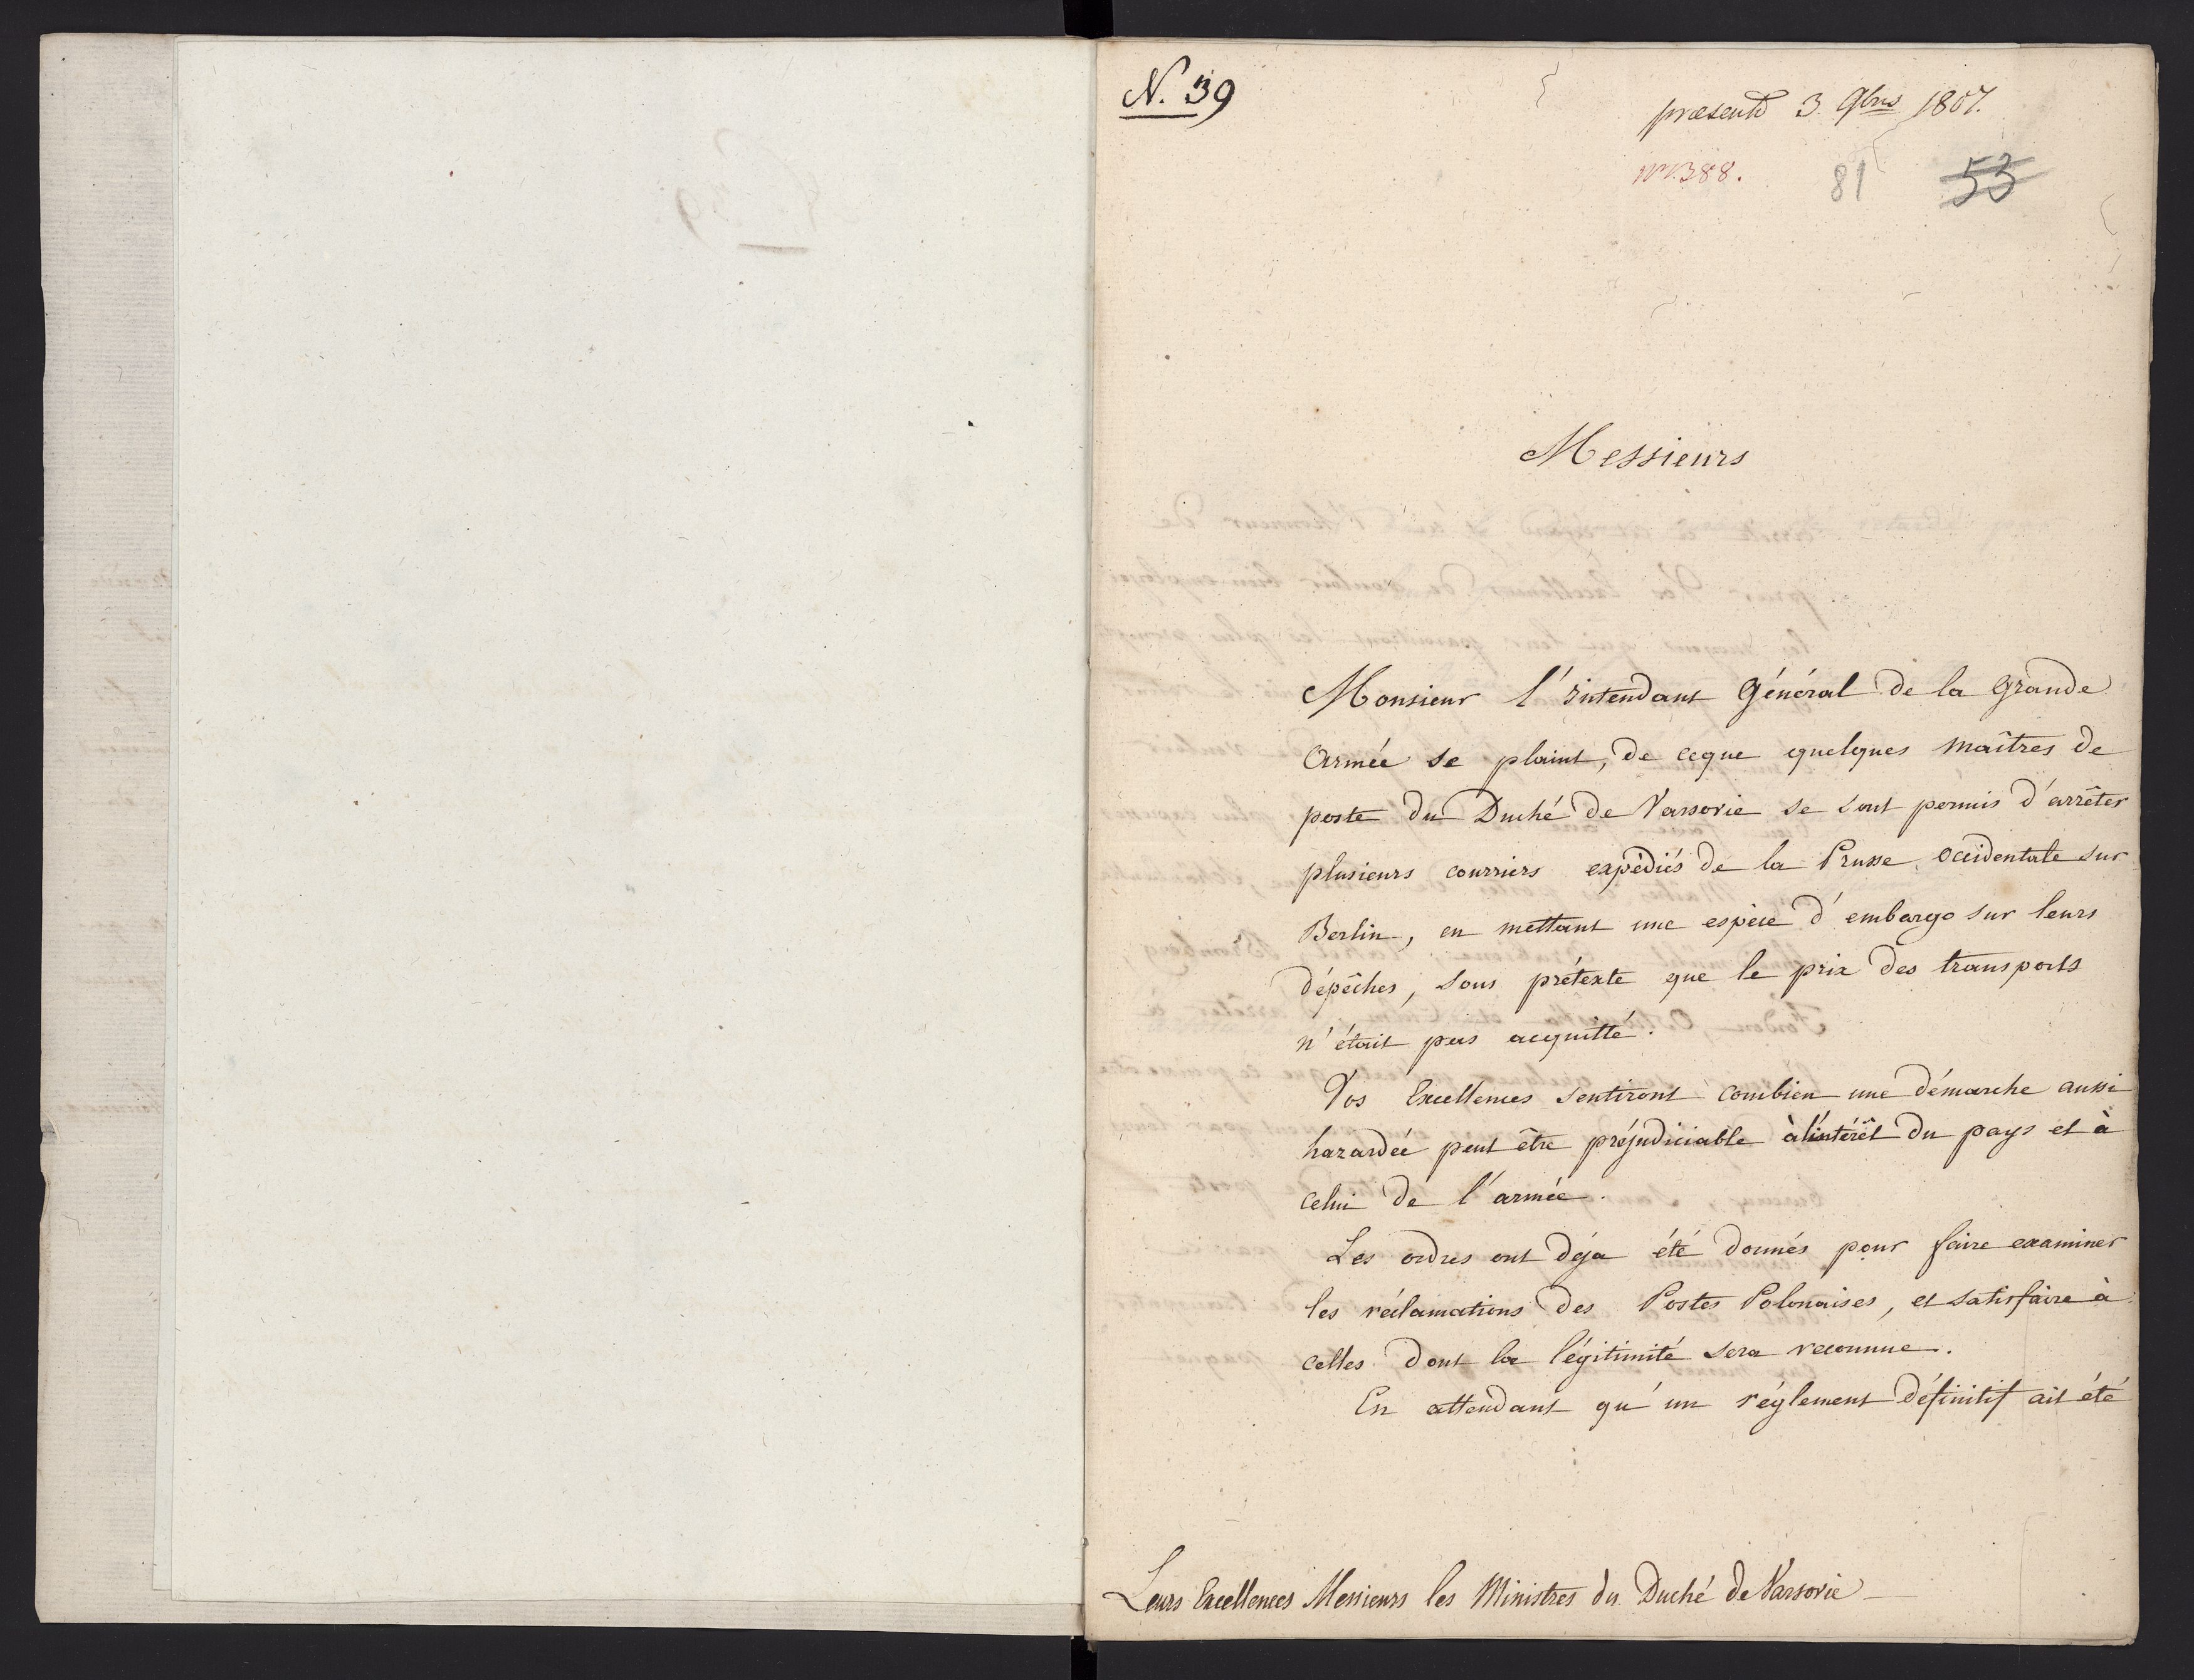 N. 39
præsentd 3. 9bris 1807.
Nr. 388.
81
53
Messieurs
Monsieur l'intendant Général de la grande
Armée se plaint, de ceque quelques maîtres de
poste du Duché de Varsovie se sont permis d'arrêter
plusieurs courriers expédiés de la Prusse occidentale sur
Berlin, en mettant une espèce d'embargo sur leurs
dépêches, sous prétexte que le prix des transports
n'était pas acquitté.
Vos Excellences sentiront combien une démarche aussi
hazardée peut être préjudiciable à l'intérêt du pays et à
celui de l'armée.
Les ordres ont déja été donnés pour faire examiner
les réclamations des Postes Polonaises, et satisfaire à
celles dont la légitimité sera reconnue.
En attendant qu'un réglement définitif ait été
Leurs Excellences Messieurs les Ministres du Duché de Varsovie